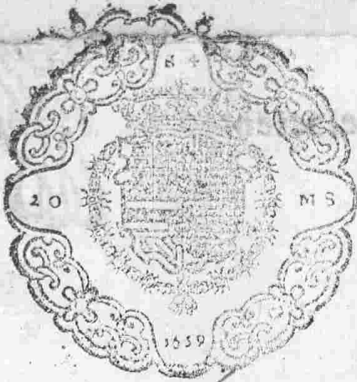 S 4
20 MS
1659